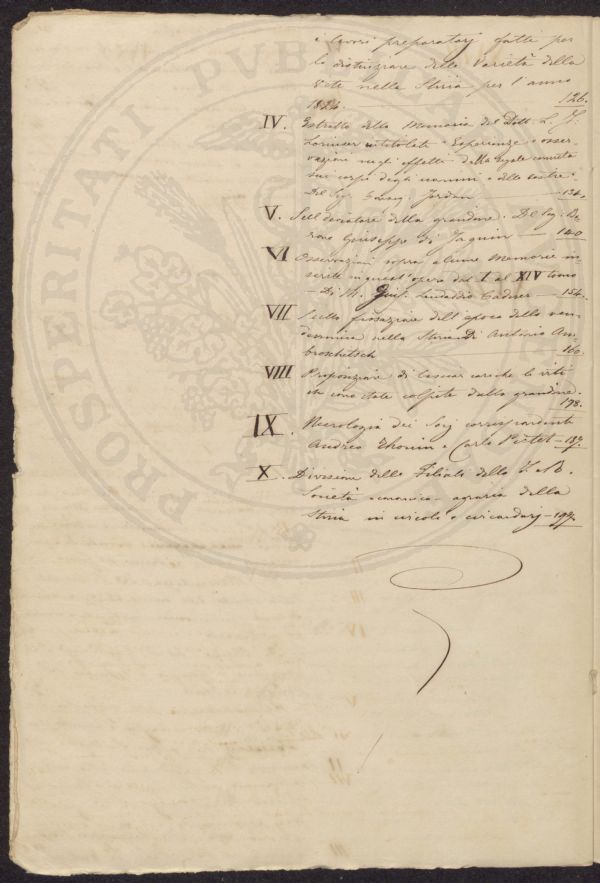 e lavori preparatorj fatte per
la distinzione delle Varietà della
Vite nella Stiria per l'anno
1824. 126.
IV. Estratto della Memoria del Dott. L. F.
Lorinser intitolata Esperienze e osser-
vazioni negli effetti della segale cornuta
sui corpi degli uomini e delle bestie.
Del Sig. Jordan 134.
V. Sull deviatore della grandine. Del Sig. Ba-
rone Giuseppe di Jaquin 140
VI Osservazioni sopra alcune memorie in-
serite in quest'opera dal I al XIV tomo
Di M. Gius. 154.
VII Sulla fissazione dell'epoca della ven-
demmia nella Stiria Di Antonio Am-
broschitsch 160.
VIII Proposizione di lasciar cariche le viti
che sono state colpite dalla grandine.
178.
IX. Necrologia dei Socj corrispondenti
Andrea Thouin e Carlo Pictet 187.
X. Divisione delle Filiali della I. R.
Società economica-agraria della
Stiria in circoli e circondarj 197.
PROSPERITATI PUBLICAE